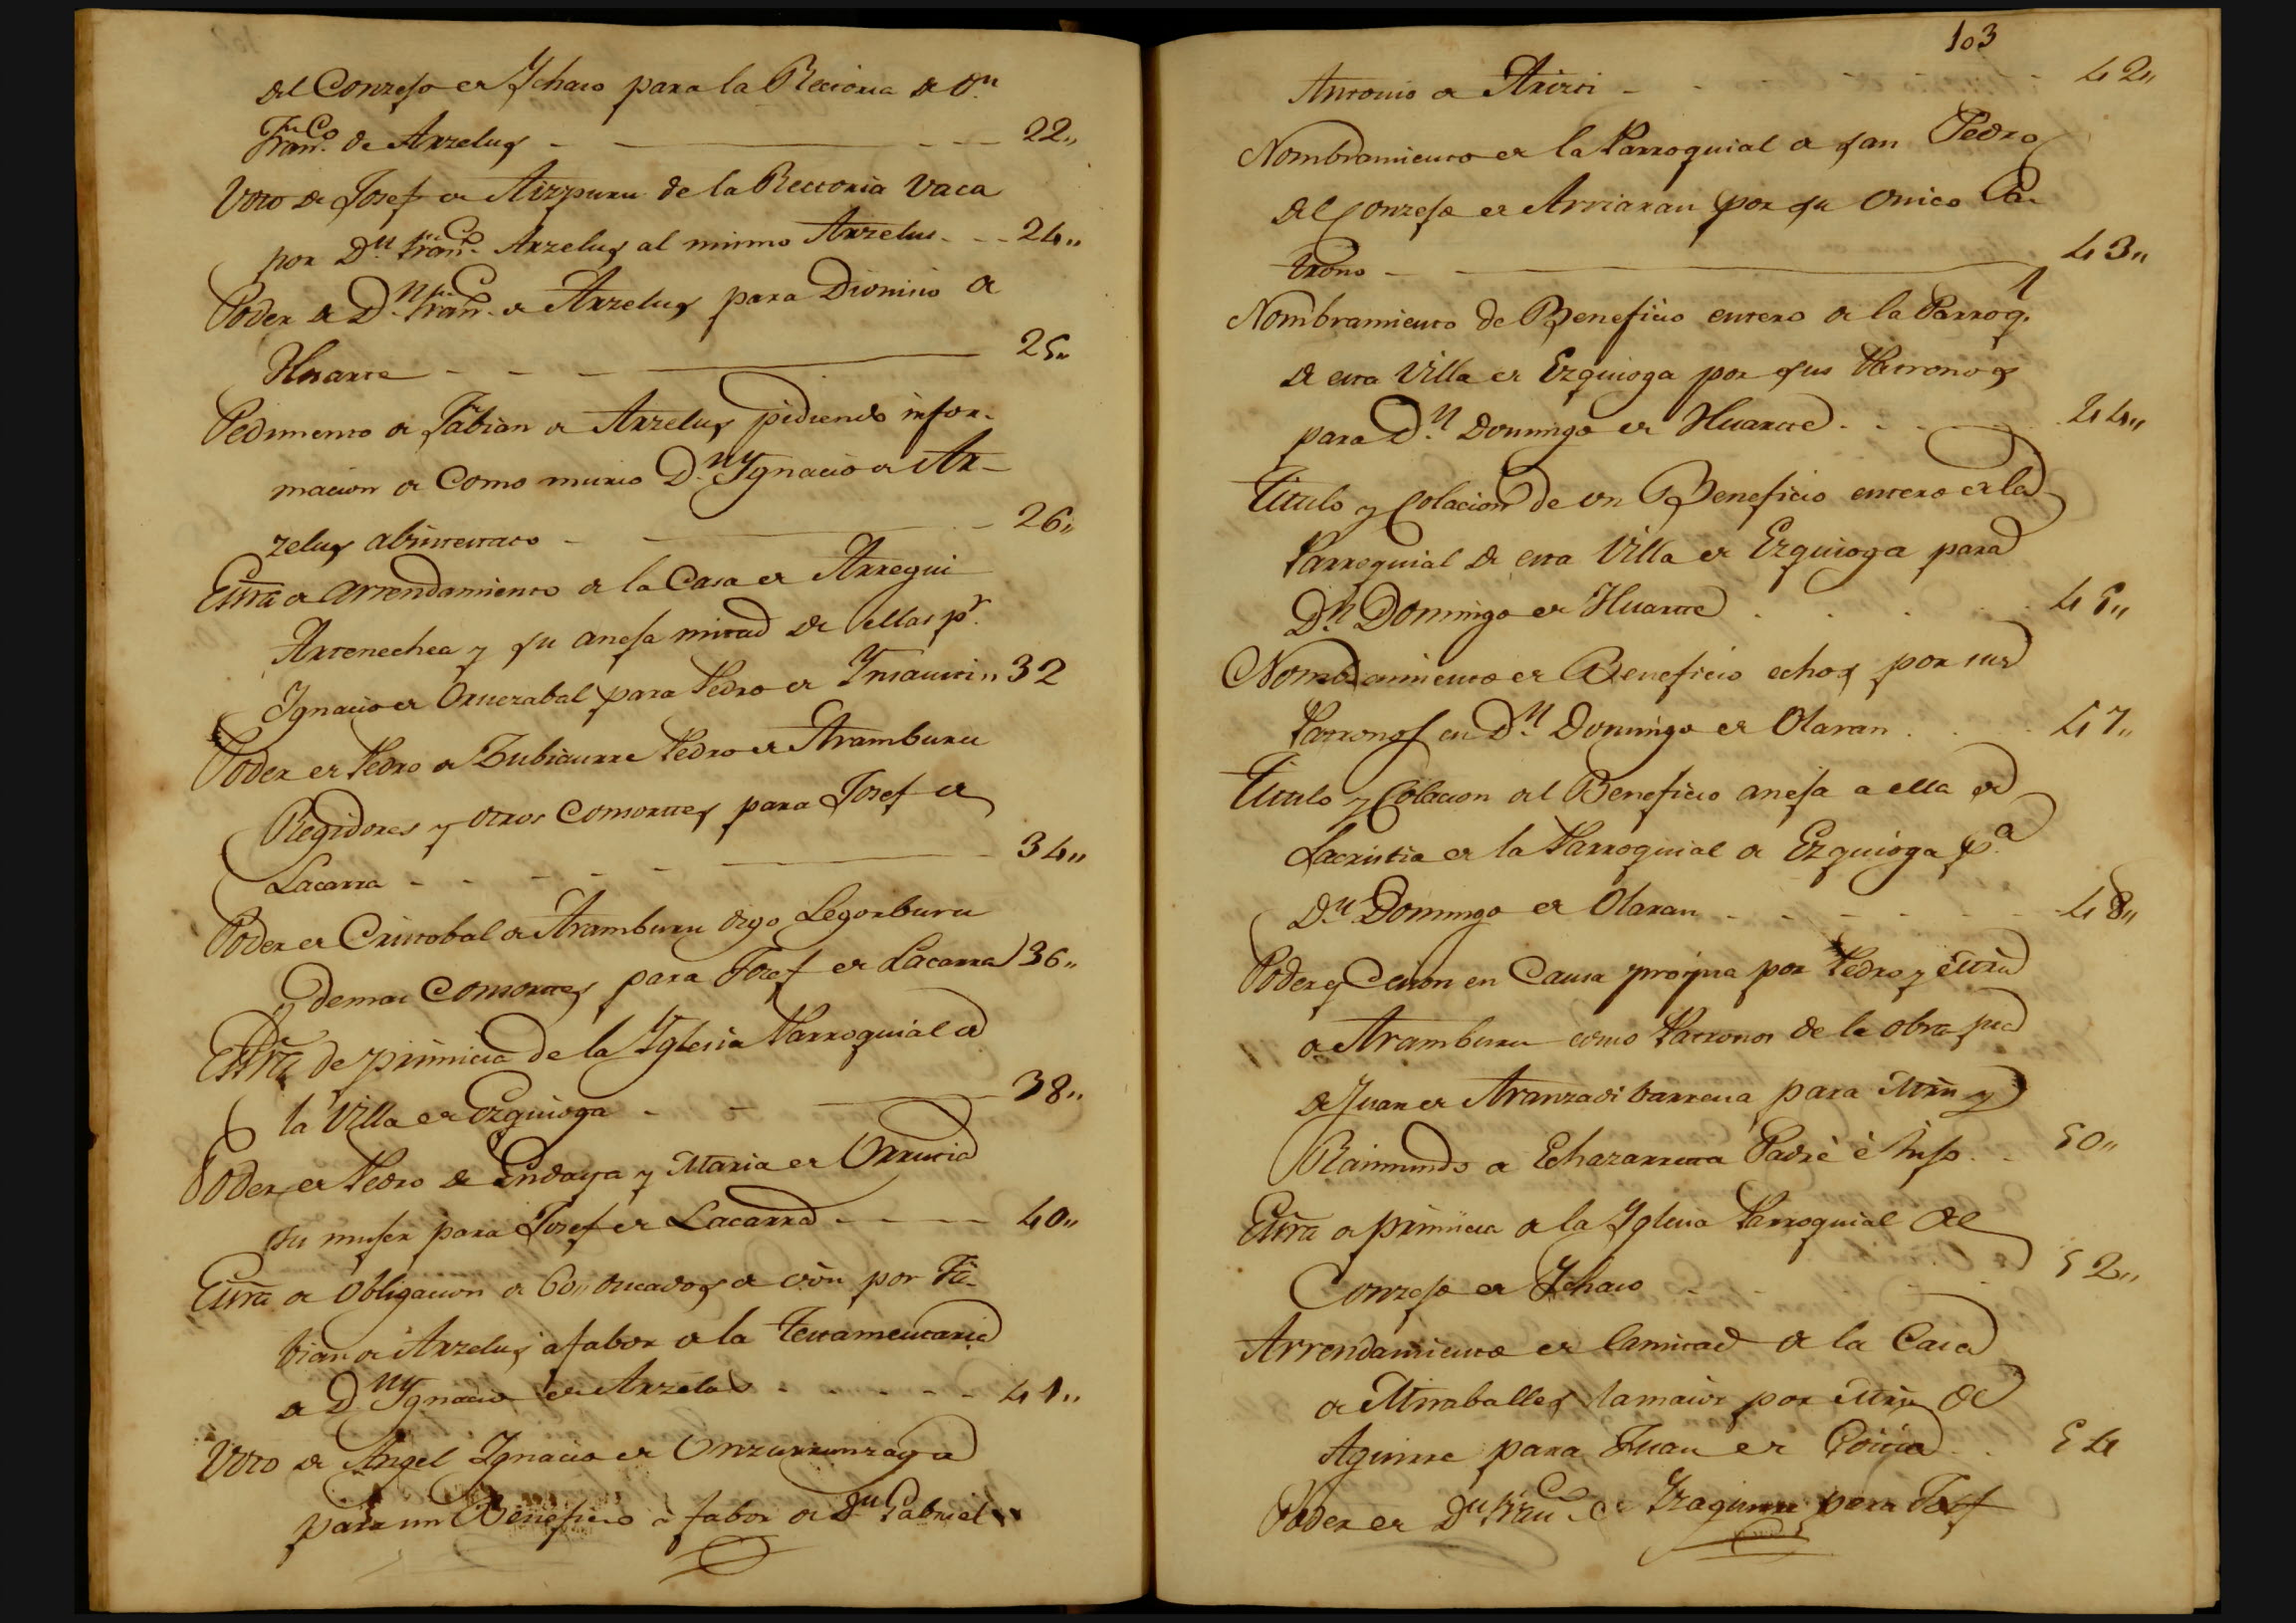 del Conzejo de Ychaso para la Rectoria de Dn.
Franco. de Arzelus - - - 22,,
Voto de Josef de Aizpuru de la Rectoria Vaca
por Dn. Franco. Arzelus al mismo Arzelus - - 24,,
Poder de Dn. Franco. de Arzelus para Dionisio de
Huarte - - - 25,,
Pedimento de Fabian de Arzelus pidiendo infor-
macion de como murio Dn. Ygnacio de Ar-
zelus abintestato - - 26,,
Essra. de arrendamiento de la Casa de Arregui
Artenechea y su anesa mitad de ellas pr.
Ignacio de Oruezabal para Pedro de Insausti,, 32
Poder de Pedro de Zubiaurre Pedro de Aramburu
Regidores y otros Consortes para Josef de
Lacarra - - - - - 34,,
Poder de Cristobal de Aramburu digo Legorburu
y demas Consortes para Josef de Lacarra 36,,
Essra. de primicia de la Yglesia Parroquial de
la Villa de Ezquioga - - 38,,
Poder de Pedro de Endaya y Maria de Urrutia
su muger para Josef de Lacarra - - - - 40,,
Essra. de Obligacion de 60,, ducados de von. por Fa-
bian de Arzelus a fabor de la Testamentaria
de Dn. Ygnacio de Arzelus - - - - - 41,,
Voto de Angel Ignacio de Unzurrunzaga
para un Beneficio à fabor de Dn. Gabriel
103
Antonio de Arizti - - - 42,,
Nombramiento de la Parroquial de San Pedro
del Conzejo de Arriaran por su Unico Pa-
trono - - 43,,
Nombramiento de Beneficio entero de la Parroql.
de esta Villa de Ezquioga por sus Patronos
para Dn. Domingo de Huarte - - - 44,,
Titulo y Colacion de un Beneficio entero de la
Parroquial de esta Villa de Ezquioga para
Dn. Domingo de Huarte . . . . 45,,
Nombramiento de Beneficio echos por sus
Patronos en Dn. Domingo de Olaran . . . 47,,
Titulo y Colacion del Beneficio anesa a ella de
Sacristia de la Parroquial de Ezquioga pa.
Dn. Domingo de Olaran - - - - - - 48,,
Poder y Cesion en Causa propia por Pedro y
de Aramburu como Patronos de la obra pia
de Juan de Aranzadi barrena para Mrn. y
Raimundo de Echazarreta Padre è hijo . . 50,,
Essra. de primicia de la Yglesia Parroquial del
Conzejo de Ychaso - . . . 52,,
Arrendamiento de la mitad de la Casa
de Miraballes la maior por Mrn. de
Aguirre para Juan de Goitia . . 54
Poder de Dn. Franco. de Yzaguirre para Josf